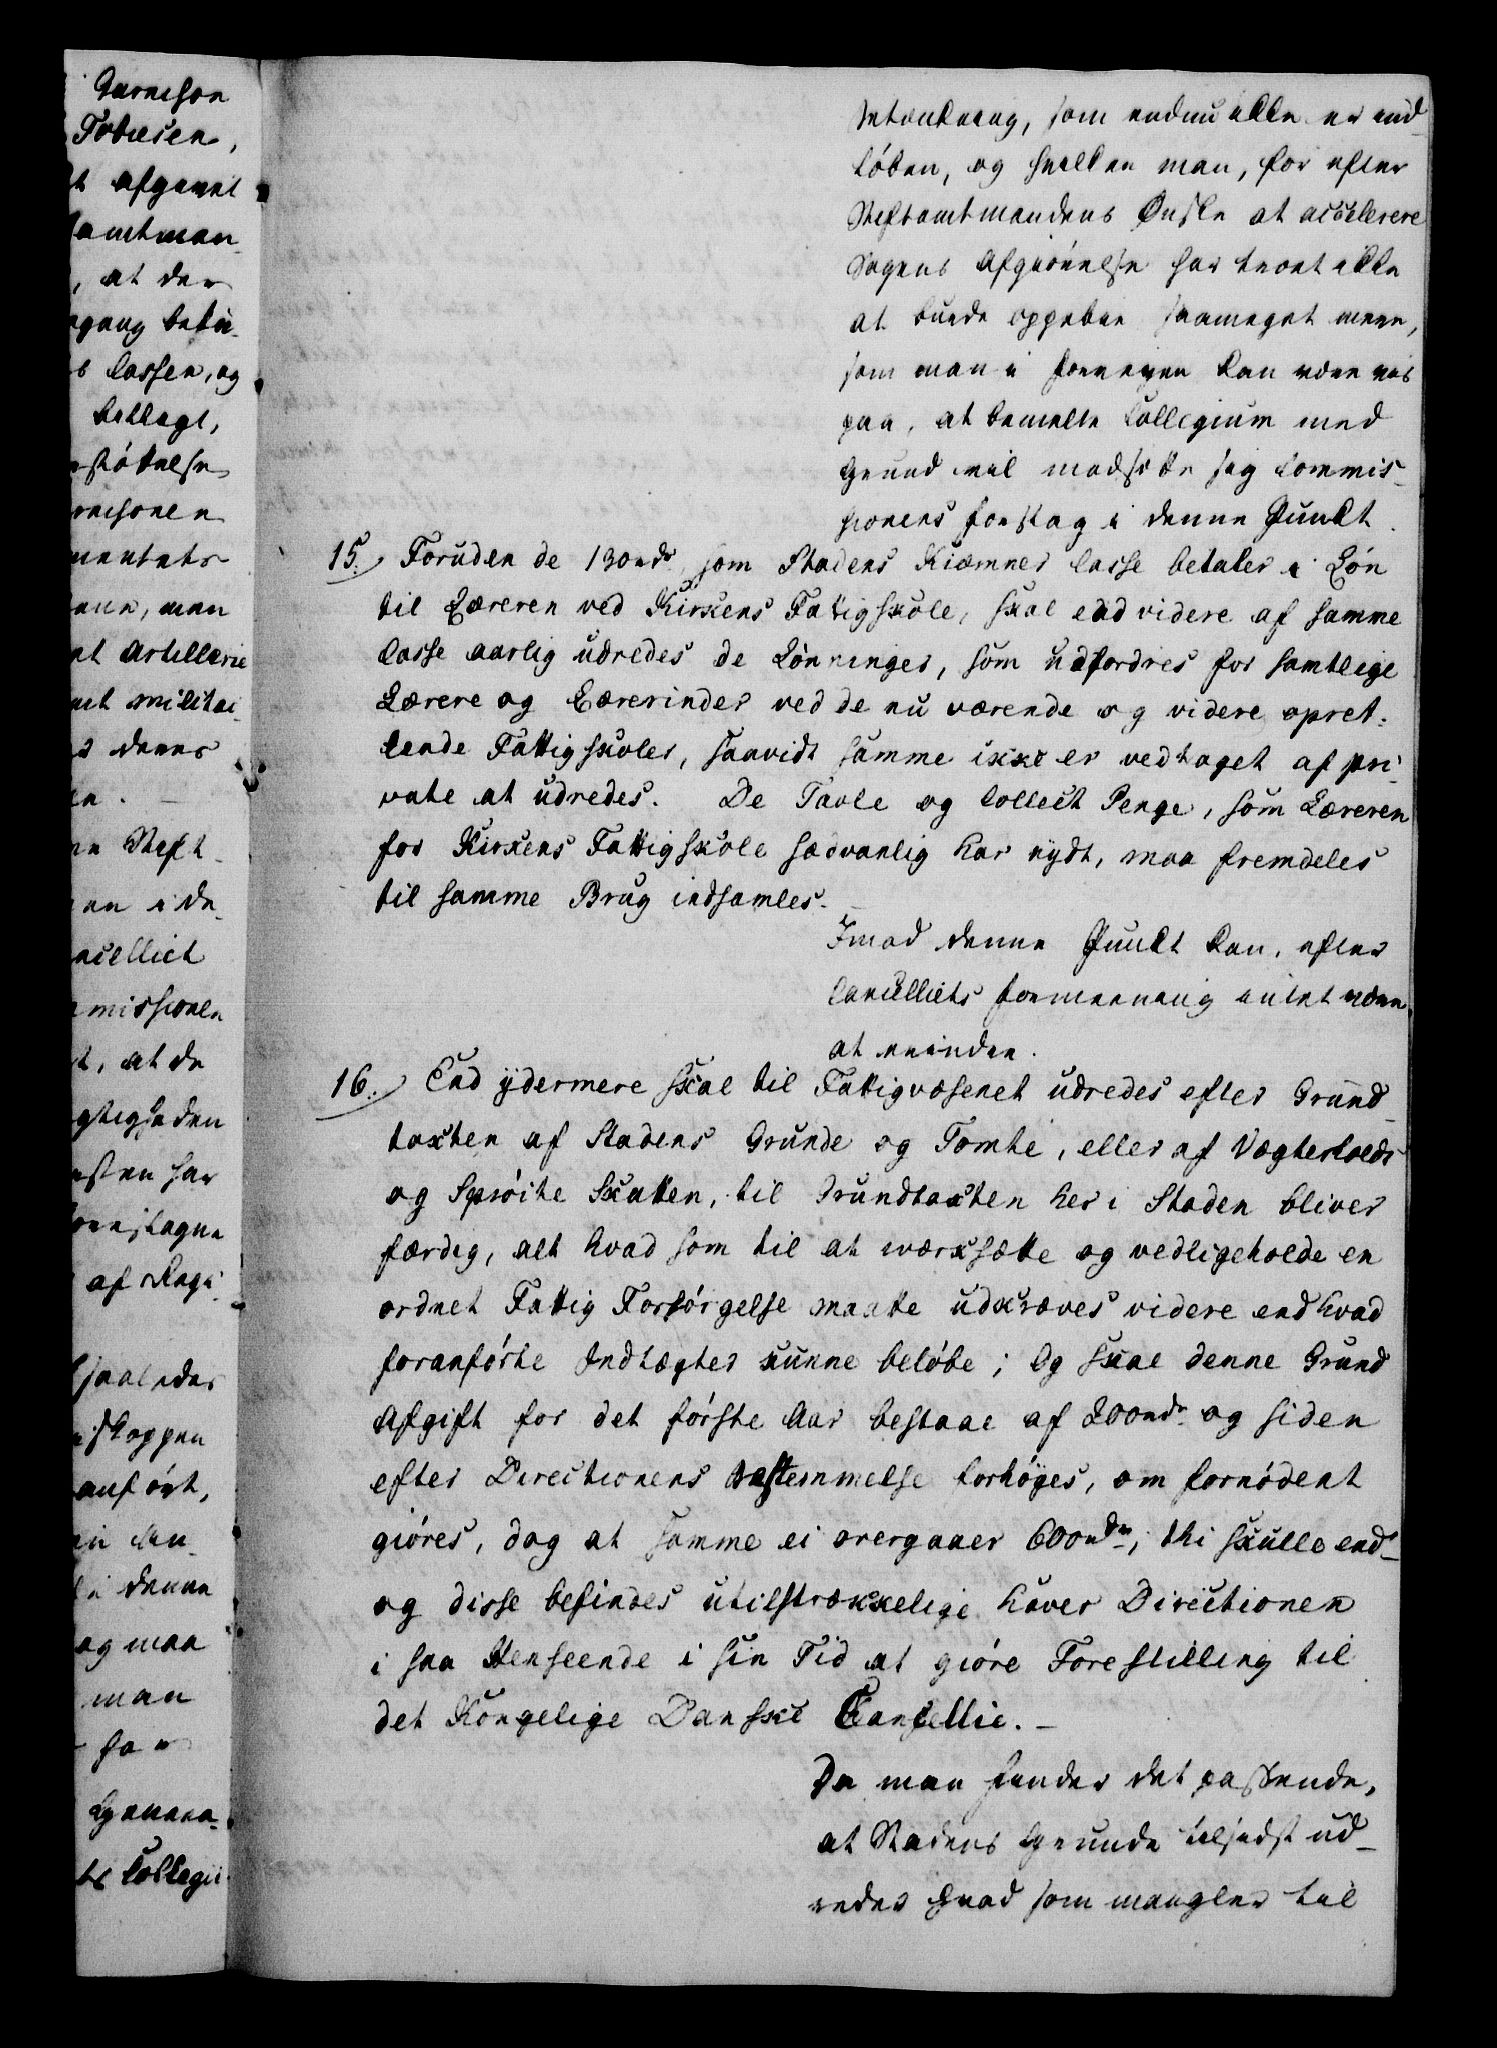 Garnison
Tobiesen,
afgivet
amtman-
, at der
gang
Cassen, og
beslagt,
Artillerie
militai-
denne
Stift-
cellict
missionen
t, at de
har
af
saaledes
anført,
denne
og maa
man
for
Collegii
Betænkning, som endnu ikke er ind-
løben, og hvilken man, for efter
Stiftamtmandens Ønske at accelerere
Sagens Afgiørelse har troet ikke
at burde oppebie saameget mere,
som man i forveyen kan være vis
paa, at bemelte Collegium med
Grund vil modsætte sig Commis-
sionens Forslag i denne Punkt.
15. Foruden de 130 rdr som Stadens Kiæmner Casse betaler i Løn
til Læreren ved Kirkens Fattigskole, skal end videre af samme
Casse aarlig udredes de Lønninger, som udfordres for samtlige
Lærere og Lærerinder ved de nu værende og videre opret-
tende Fattigskoler, saavidt samme ikke er vedtaget af pri-
vate at udredes. De Tavle og Collect Penge, som Læreren
for Kirkens Fattigskole sædvanlig har nydt, maa fremdeles
til samme Brug indsamles. –
Imod denne Punkt kan, efter
Cancelliets Formeening intet være
at erindre.
16. End ÿdermere skal til Fattigvæsenet udredes efter Grund-
taxten af Stadens Grunde og Tomte, eller af Vægterholds
og Sprøite Skatten, til Grundtaxten her i Staden bliver
færdig, alt hvad som til at iværksætte og vedligeholde en
ordnet Fattig Forsørgelse maatte udkræves videre end hvad
foranførte Indtægter kunne beløbe; Og skal denne Grund
Afgift for det første Aar bestaae af 200 rdr og siden
efter Directionens Bestemmelse forhøyes, om fornødent
giøres, dog at samme ei overgaaer 600 rdr; thi skulle end-
og disse befindes utilstrækkelige haver Directionen
i saa Henseende i sin Tid at giøre Forestilling til
det Kongelige Danske Cancellie. –
Da man finder det passende,
at Stadens Grunde tilsidst ud-
reder hvad som mangler til